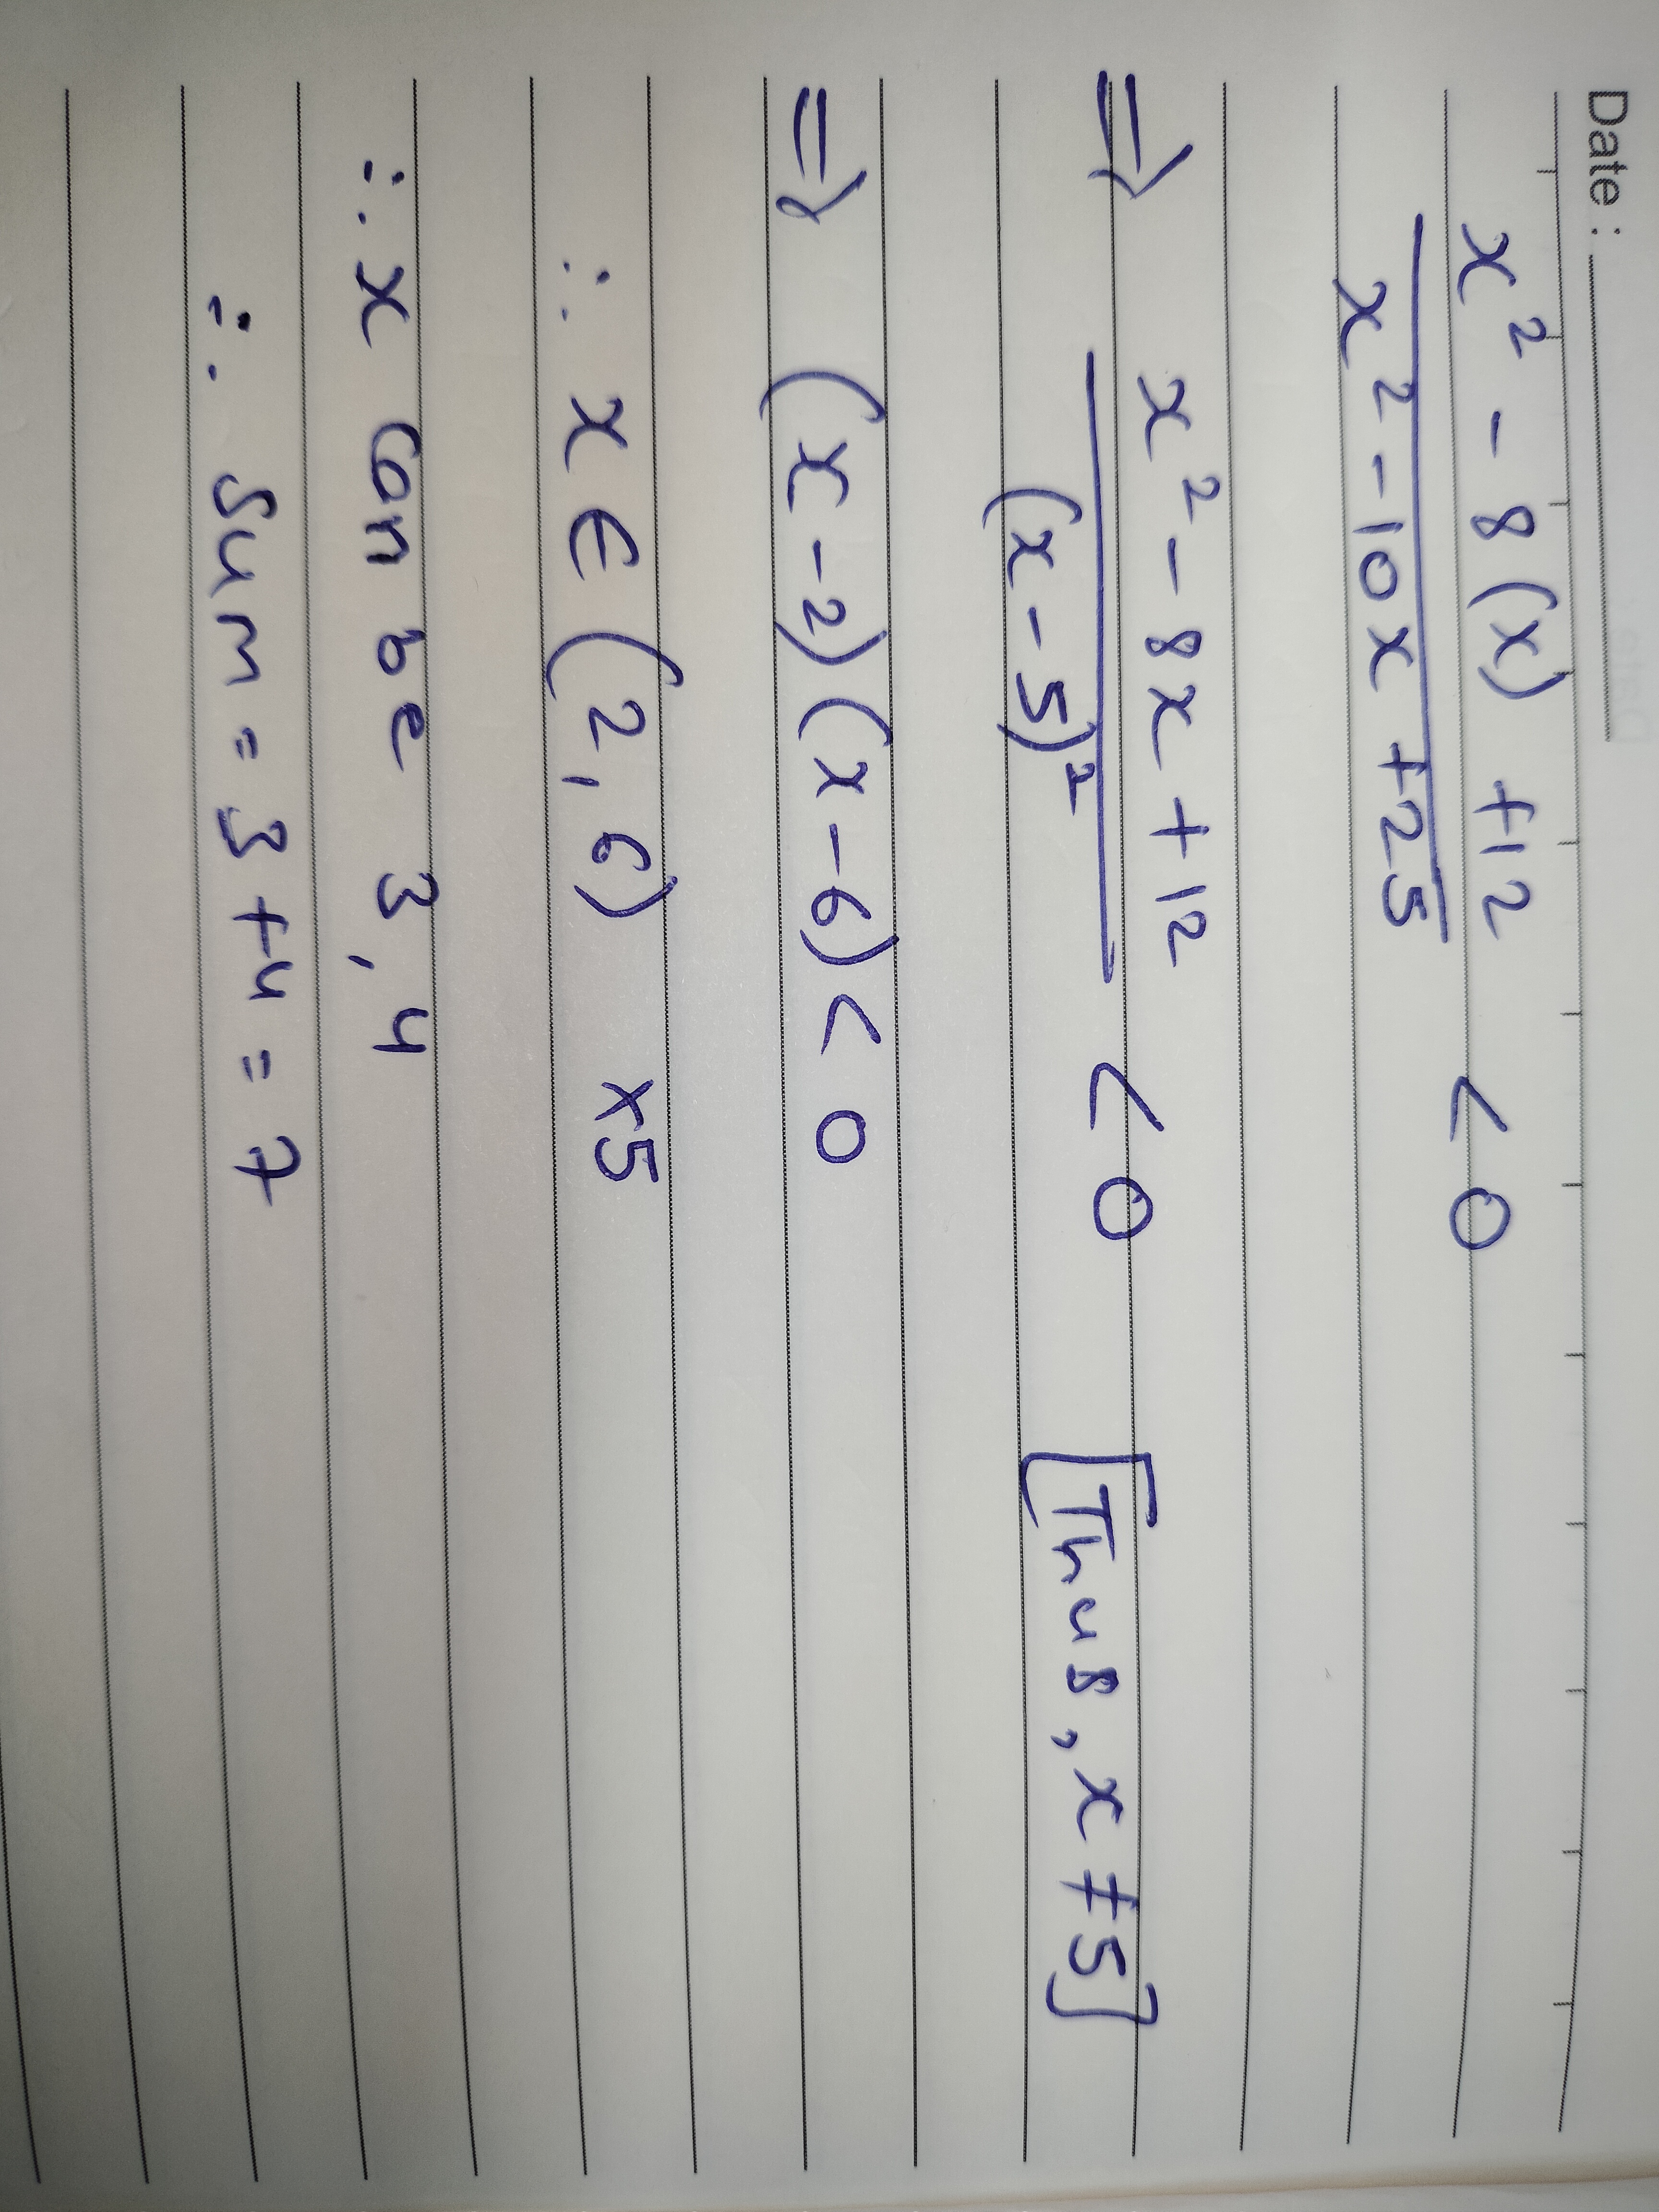 Date :
x² - 8(x) + 12 < 0
x² - 10x + 25
⇒ x² - 8x + 12 < 0 [Thus, x ≠ 5]
(x - 5)²
⇒ (x - 2)(x - 6) < 0
∴ x ∈ (2, 6) x5
∴ x can be 3, 4
∴ Sum = 3 + 4 = 7